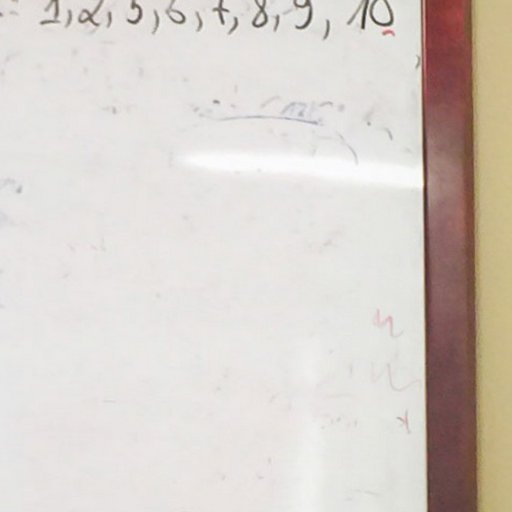 1, 2, 5, 6, 7, 8, 9, 10